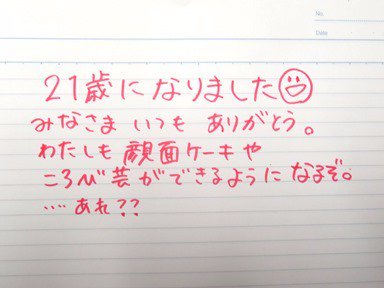 No.
Date
21歳になりました
みなさま いつも ありがとう。
わたしも 顔面ケーキや
ころび芸ができるようになるぞ。
…. あれ??